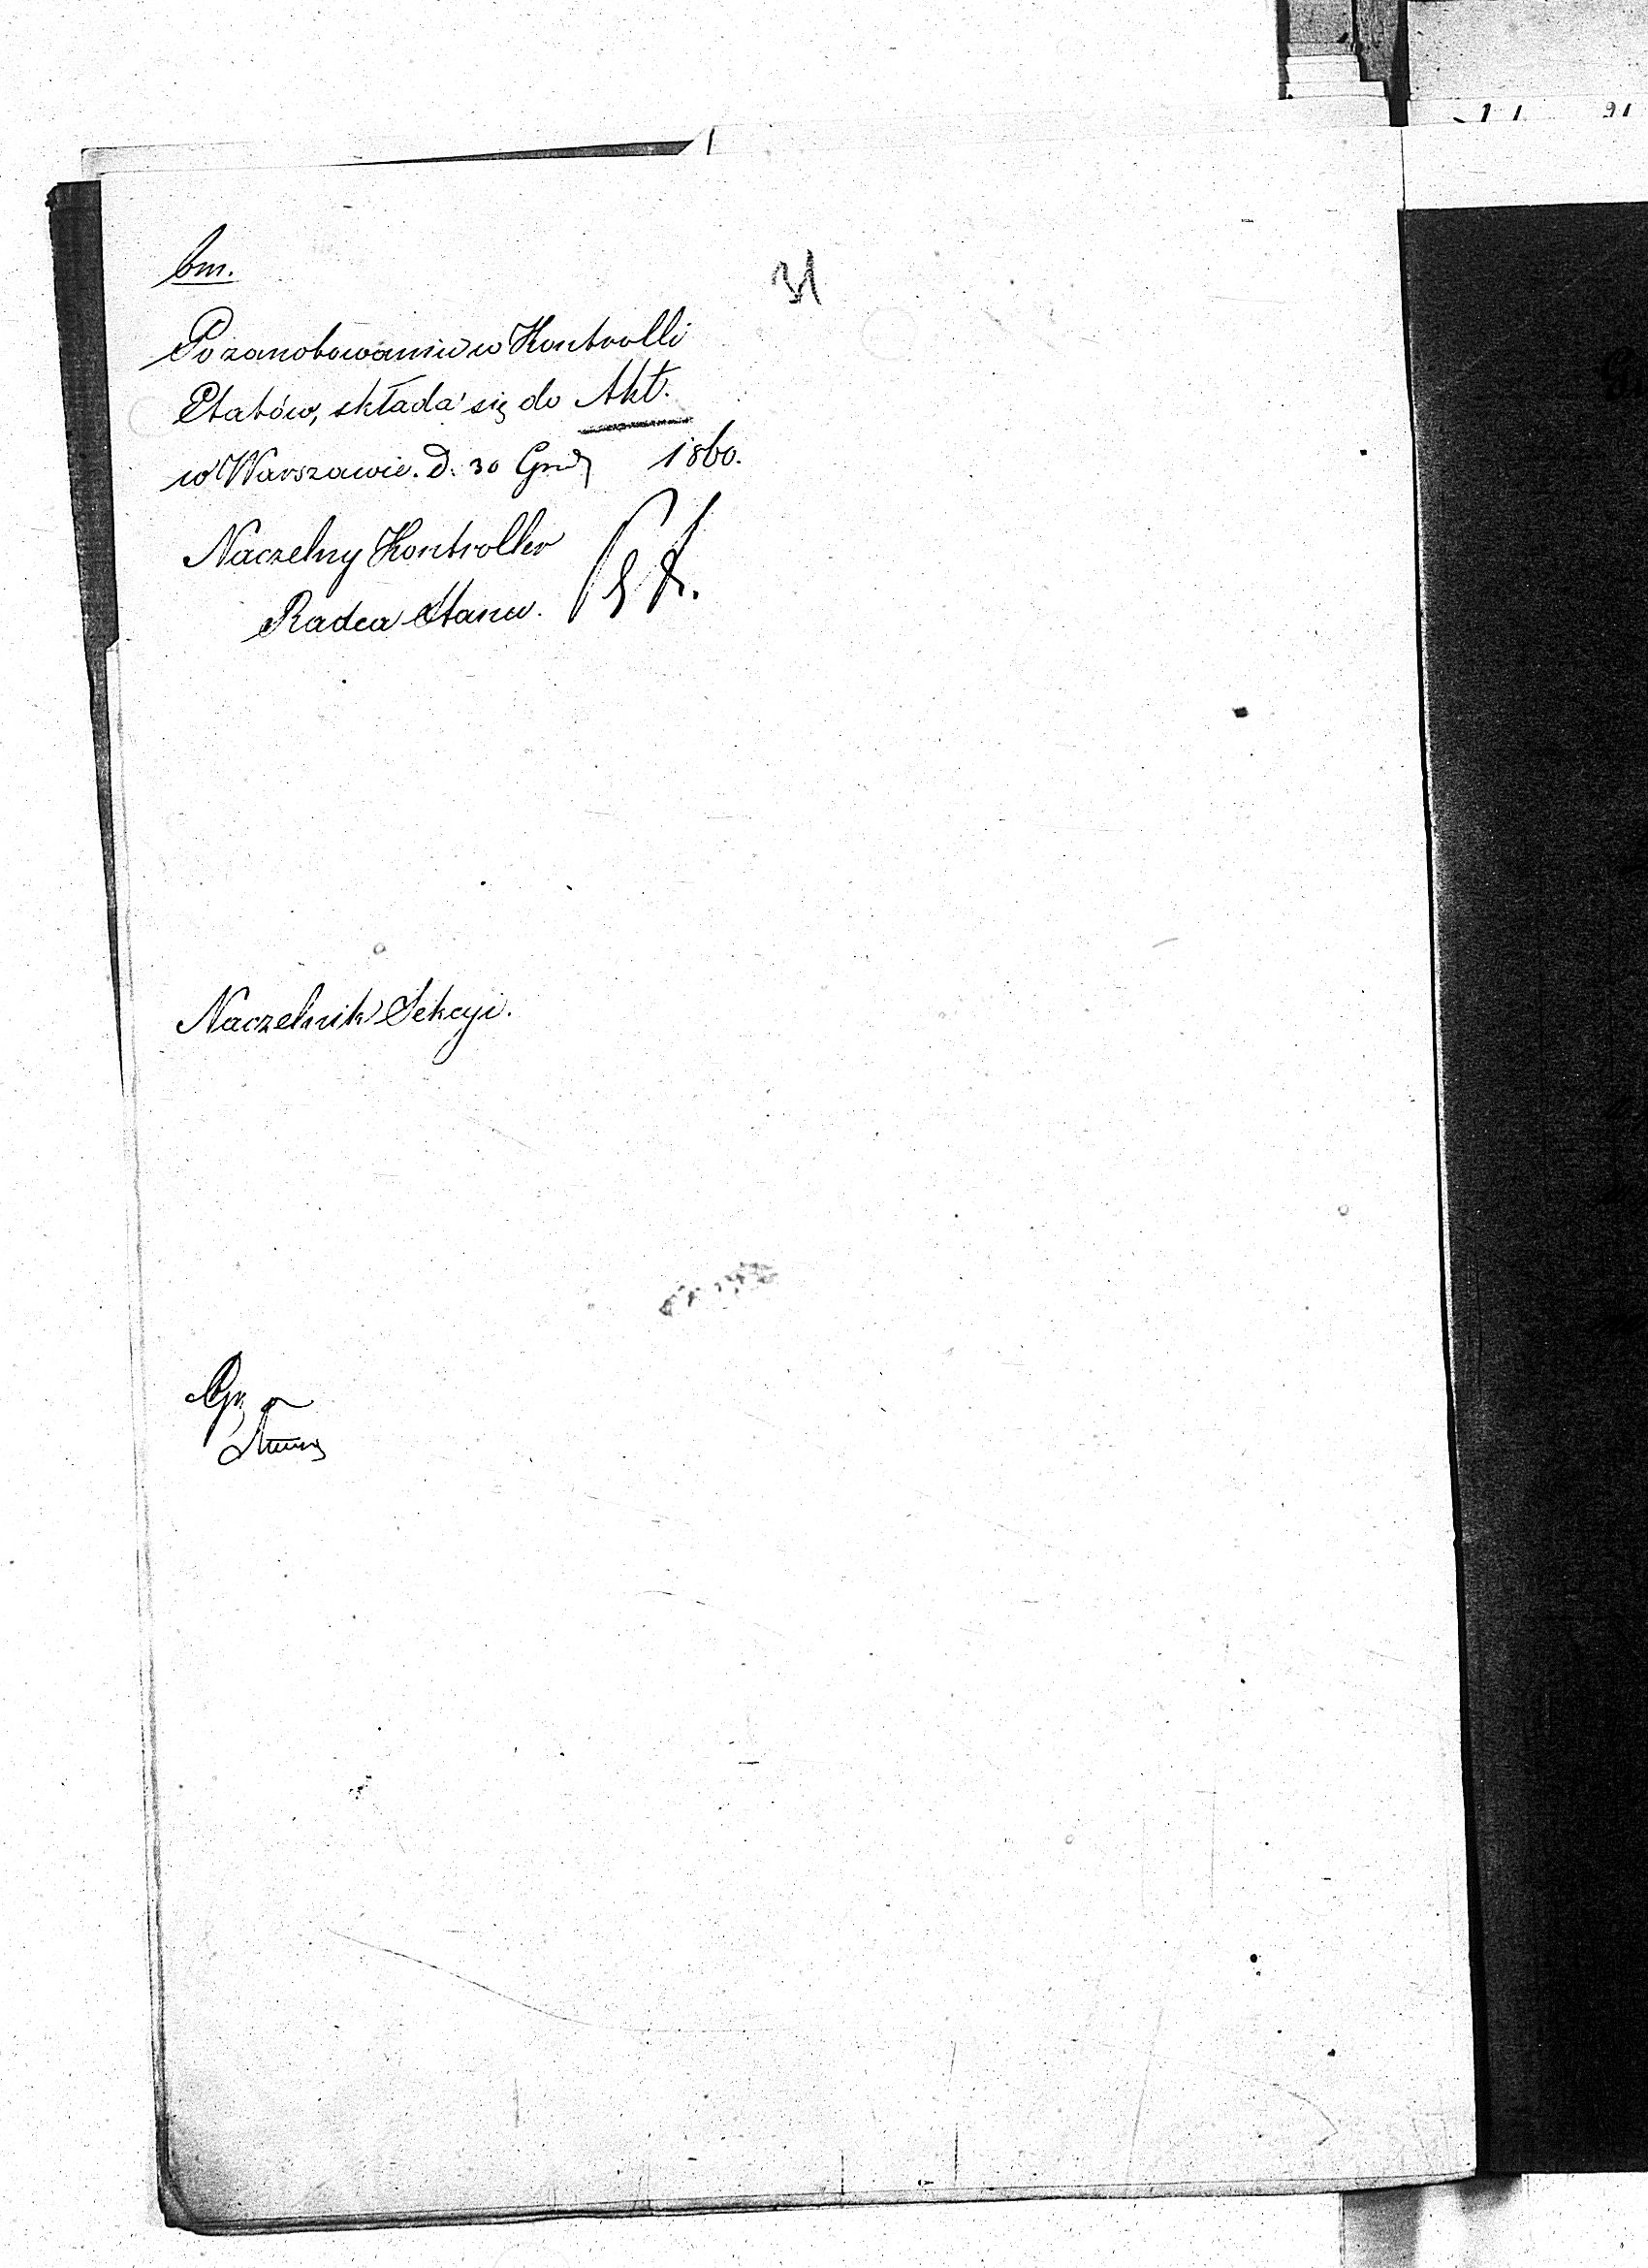 bm.
31
Po zanotowaniu w Kontrolli
Etatów, składa się do Akt.
w Warszawie. D. 30 Grud 1860.
Naczelny Kontroller
Radca Stanu.
Naczelnik Sekcyi.